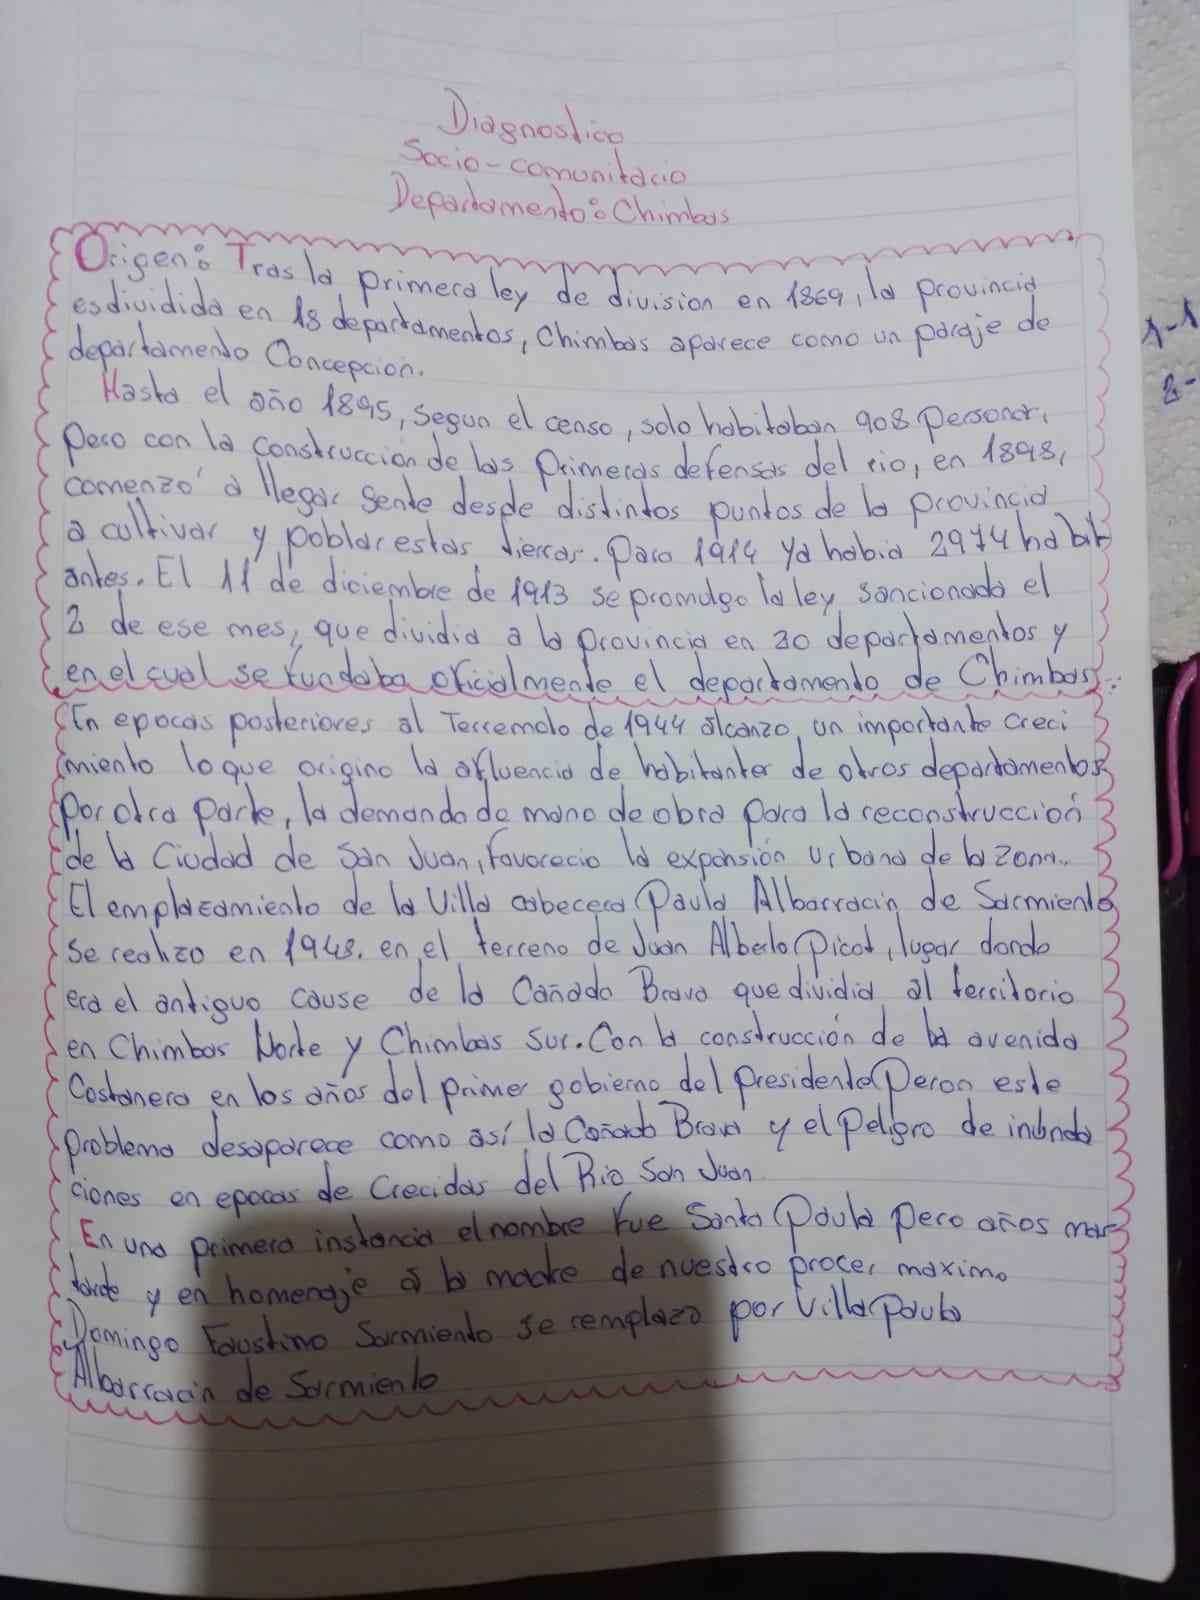 Diagnostico
Socio-comunitario
Departamento: Chimbas
Origen: Tras la primera ley de division en 1869, la provincia
es dividida en 18 departamentos, Chimbas aparece como un paraje de
departamento Concepcion.
Hasta el año 1895, segun el censo, solo habitaban 908 personas,
pero con la construccion de las primeras defensas del rio, en 1898,
comenzó a llegar gente desde distintos puntos de la provincia
a cultivar y poblar estas tierras. Para 1914 ya habia 2974 habit
antes. El 11 de diciembre de 1913 se promulgo la ley, sancionada el
2 de ese mes, que dividia a la provincia en 20 departamentos y
en el cual se fundaba oficialmente el departamento de Chimbas.
En epocas posteriores al Terremoto de 1944 alcanzo, un importante creci
miento lo que origino la afluencia de habitantes de otros departamentos
por otra parte, la demanda de mano de obra para la reconstrucción
de la Ciudad de San Juan, favorecio la expansión urbana de la zona..
El emplazamiento de la Villa cabecera Paula Albarracin de Sarmiento
se realizo en 1948. en el terreno de Juan Alberto Picot, lugar donde
era el antiguo cause de la Cañada Brava que dividia al territorio
en Chimbas Norte y Chimbas Sur. Con la construcción de la avenida
Costanera en los años del primer gobierno del presidente Peron este
problema desaparece como así la Cañada Brava y el peligro de inunda
ciones en epocas de Crecidas del Rio San Juan
En una primera instancia el nombre fue Santa Paula pero años mas
tarde y en homenaje a la madre de nuestro procer maximo
Domingo Faustino Sarmiento se remplazo por Villa Paula
Albarracin de Sarmiento
1-1
2-